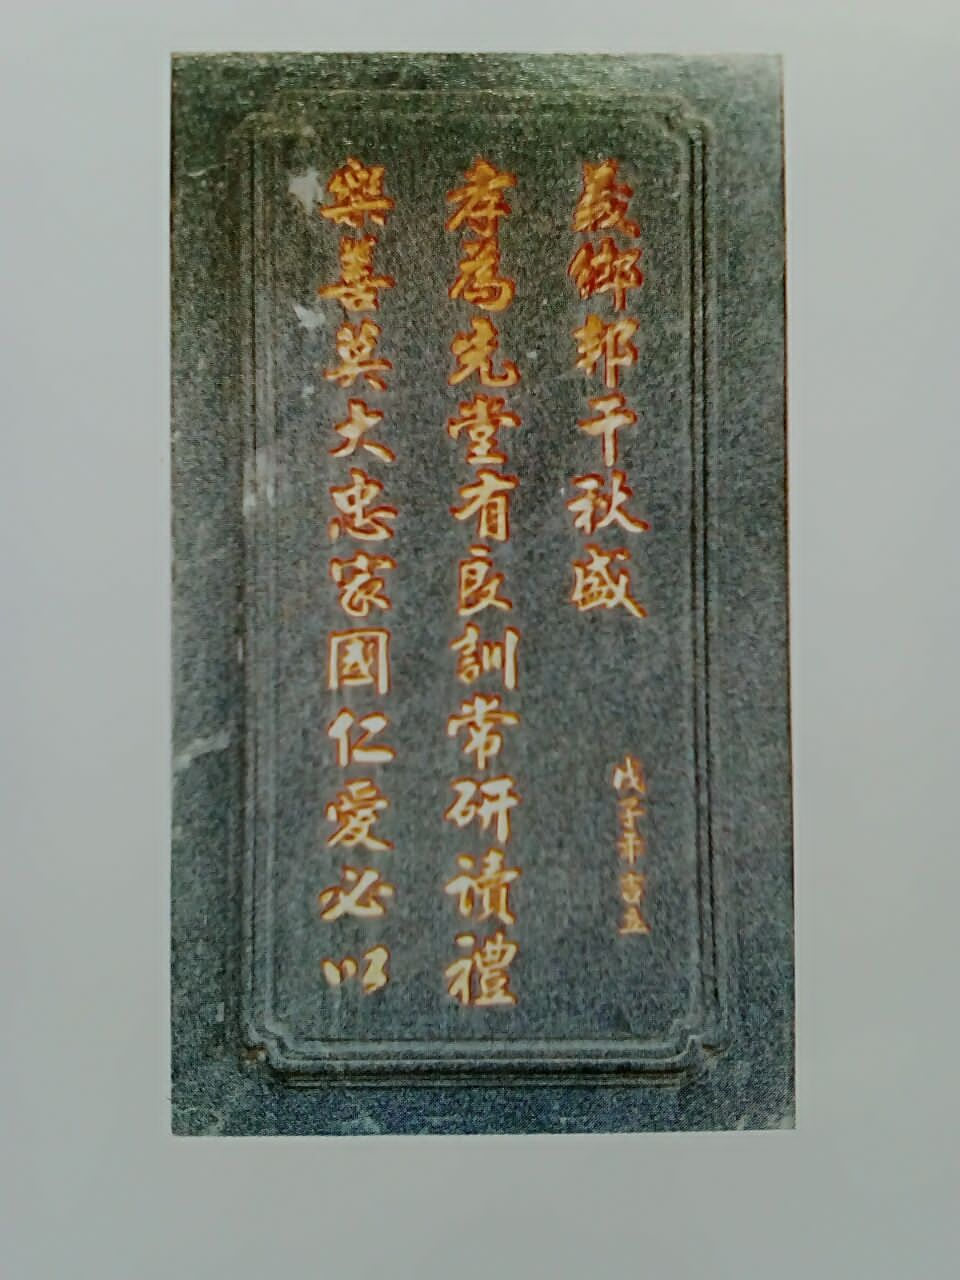 樂善莫大忠家國仁愛必以
孝為先堂有良訓常研讀禮
義鄉邦千秋盛
戊子年